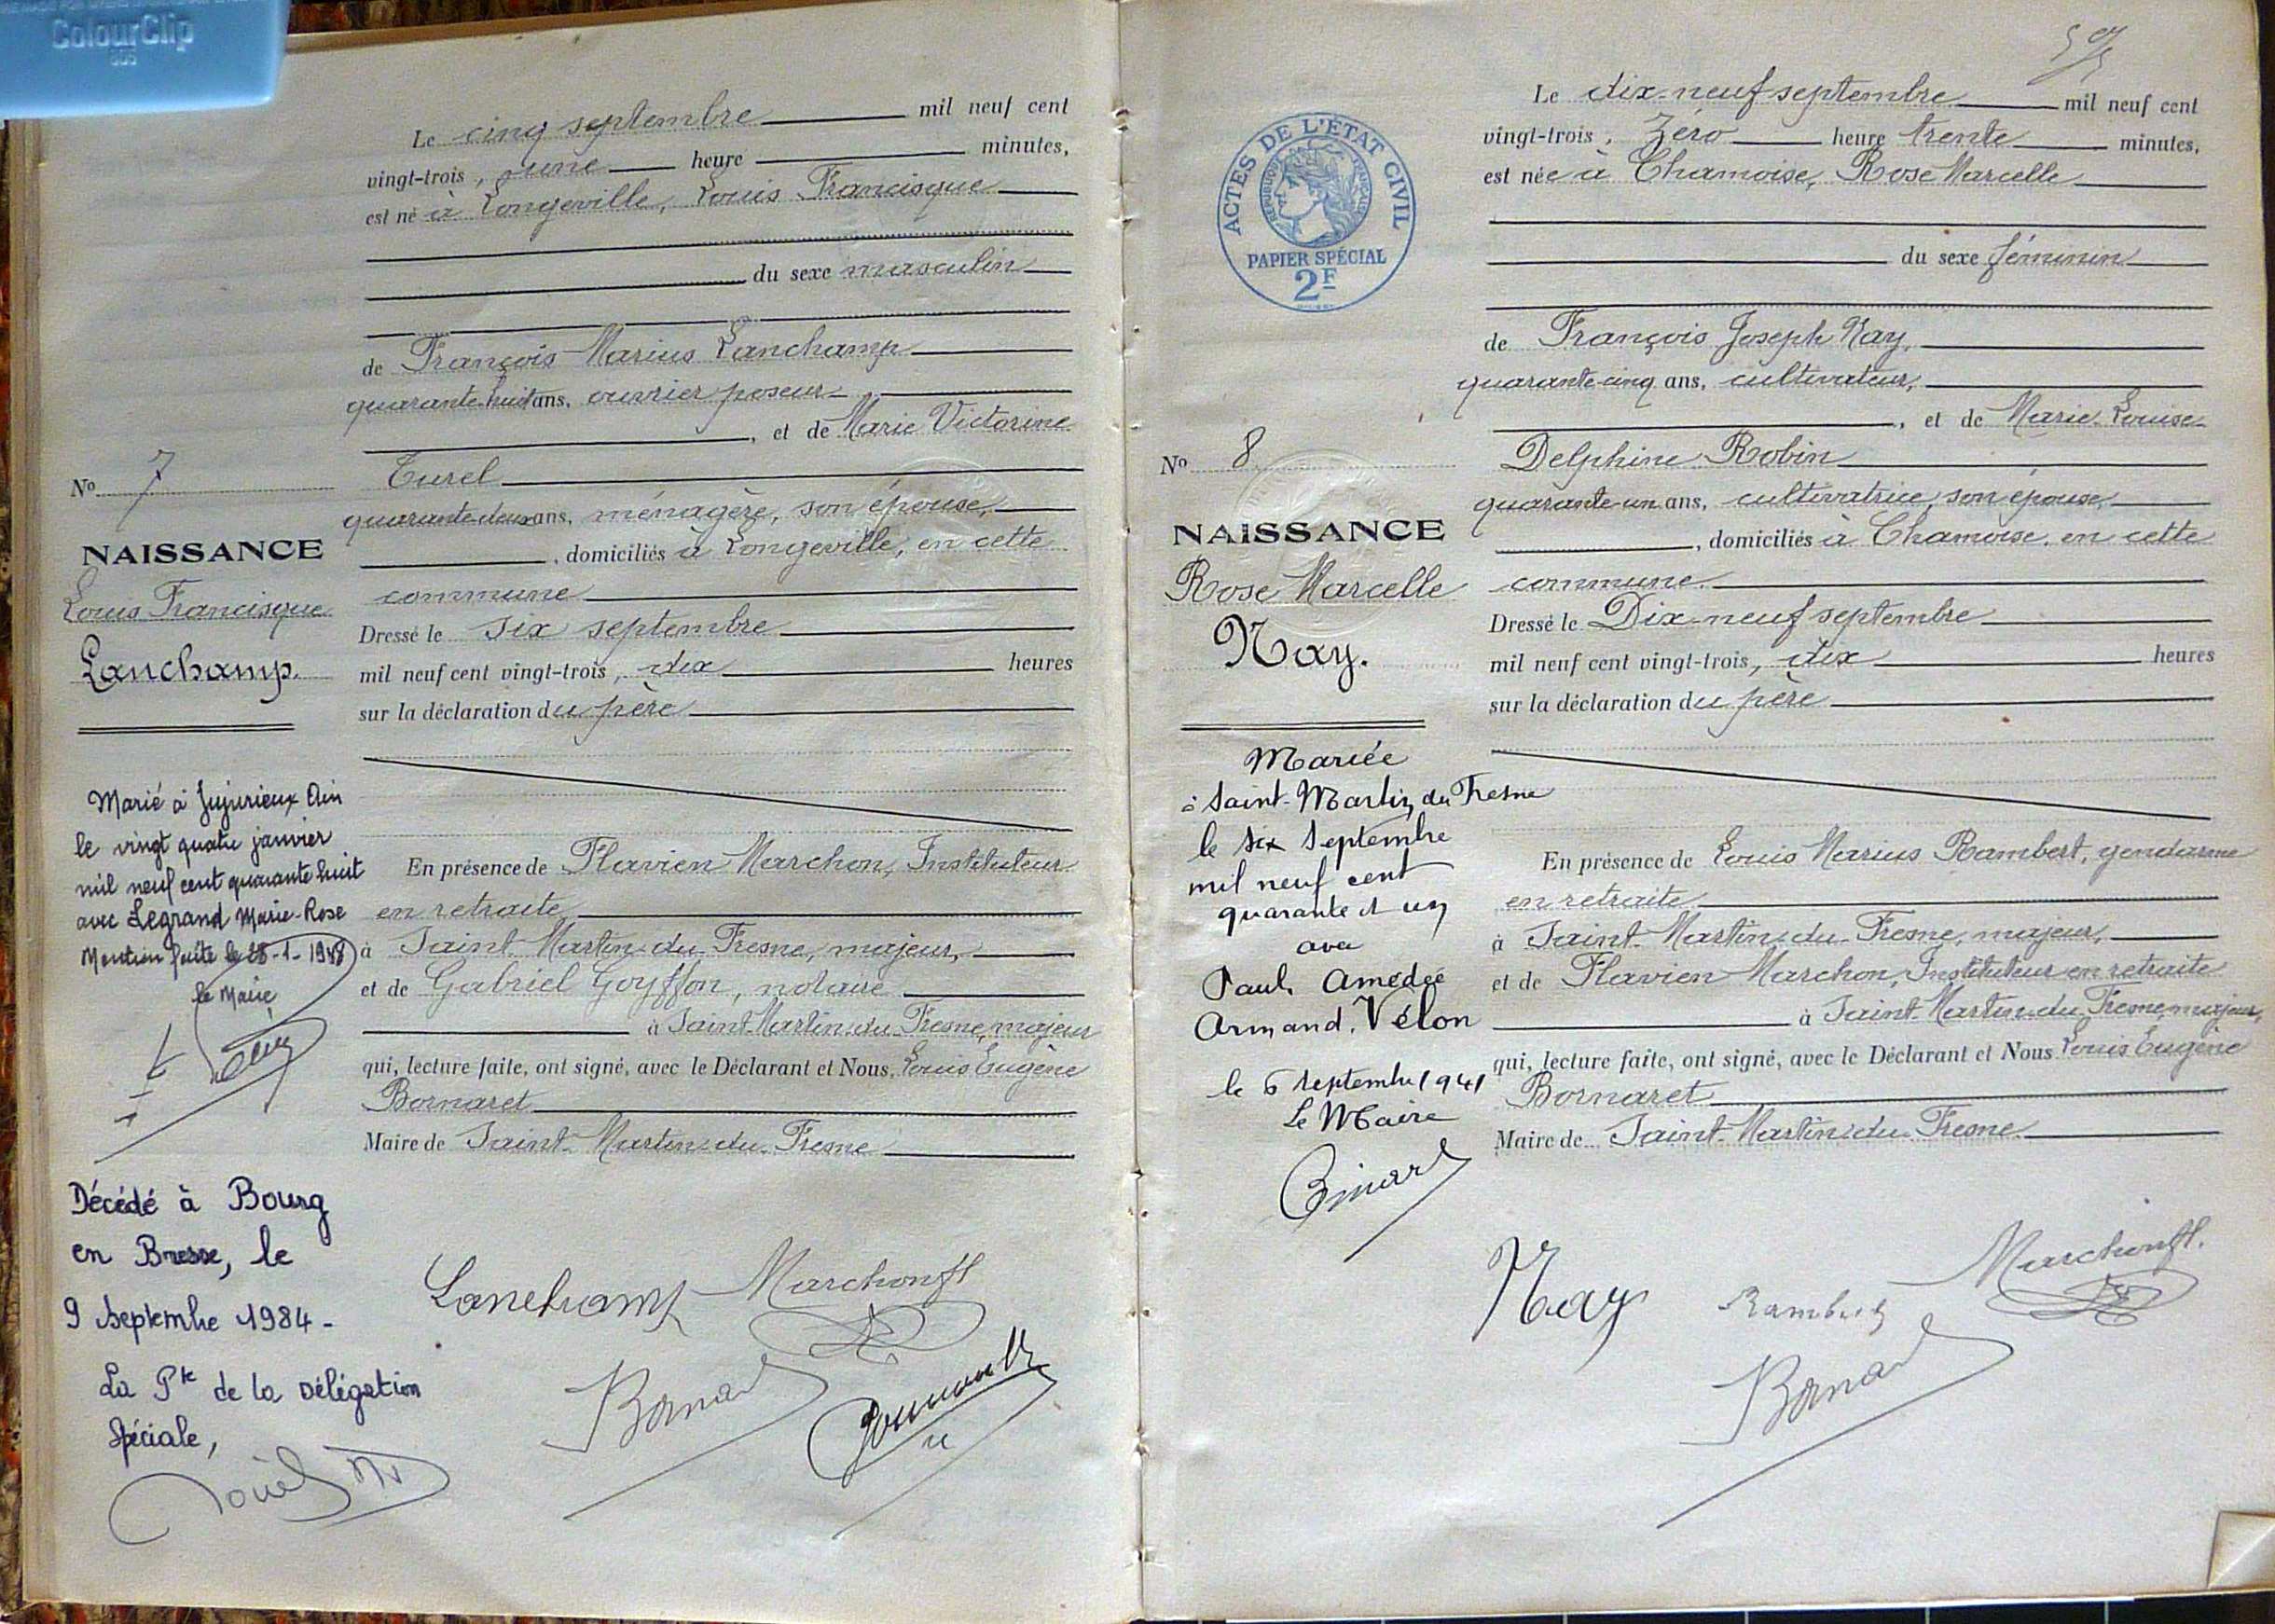 ColourClip
Le cinq septembre mil neuf cent
vingt-trois, une heure minutes,
est né à Longeville, Louis Francisque
du sexe masculin
de François Marius Lanchamp
quarante-huit ans, ouvrier poseur
, et de Marie Victorine
Turel
quarante-deux ans, ménagère, son épouse,
, domiciliés à Longeville, en cette
commune
Dressé le six septembre
mil neuf cent vingt-trois, dix heures
sur la déclaration du père
En présence de Flavien Marchon, Instituteur
en retraite
à Saint-Martin-du-Fresne, majeur,
et de Gabriel Goyffon, notaire
à Saint-Martin-du-Fresne, majeur
qui, lecture faite, ont signé, avec le Déclarant et Nous, Louis Eugène
Bornaret
Maire de Saint-Martin-du-Fresne
No 7
NAISSANCE
Louis Francisque
Lanchamp.
Marié à Jujurieux Ain
le vingt quatre janvier
mil neuf cent quarante huit
avec Legrand Marie-Rose
Mention faite le 28-1-1948
Le Maire
Décédé à Bourg
en Bresse, le
9 Septembre 1984-
La Pte de la Délégation
Spéciale,
Lanchamp Marchon fl
Le dix-neuf septembre mil neuf cent
vingt-trois, Zéro heure trente minutes,
est née à Chamoise, Rose Marcelle
du sexe féminin
de François Joseph Nay,
quarante-cinq ans, cultivateur,
, et de Marie-Louise
Delphine Robin
quarante-un ans, cultivatrice, son épouse,
, domiciliés à Chamoise, en cette
commune.
Dressé le Dix-neuf septembre
mil neuf cent vingt-trois, dix heures
sur la déclaration du père
En présence de Louis Marius Rambert, gendarme
en retraite
à Saint-Martin-du-Fresne, majeur,
et de Flavien Marchon, Instituteur en retraite
à Saint-Martin-du-Fresne, majeur,
qui, lecture faite, ont signé, avec le Déclarant et Nous Louis Eugène
Bornaret
Maire de Saint-Martin-du-Fresne
ACTES DE L'ÉTAT CIVIL
RÉPUBLIQUE FRANÇAISE
PAPIER SPÉCIAL
2F
No 8
NAISSANCE
Rose Marcelle
Nay.
Mariée
à Saint-Martin du Fresne
le six Septembre
mil neuf cent
quarante et un
avec
Paul Amédée
Armand, Vélon
le 6 Septembre 1941
Le Maire
Nay Rambert Marchon fl.